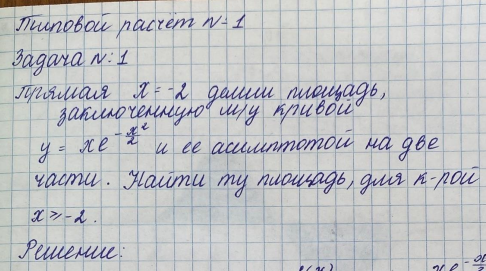 Типовой расчёт N=1
Задача N:1
Прямая x=-2 делит площадь,
заключенную м/у кривой
y = xe^{-\frac{x^2}{2}} и ее асимптотой на две
части. Найти ту площадь, для к-рой
x ≥ -2.
Решение: